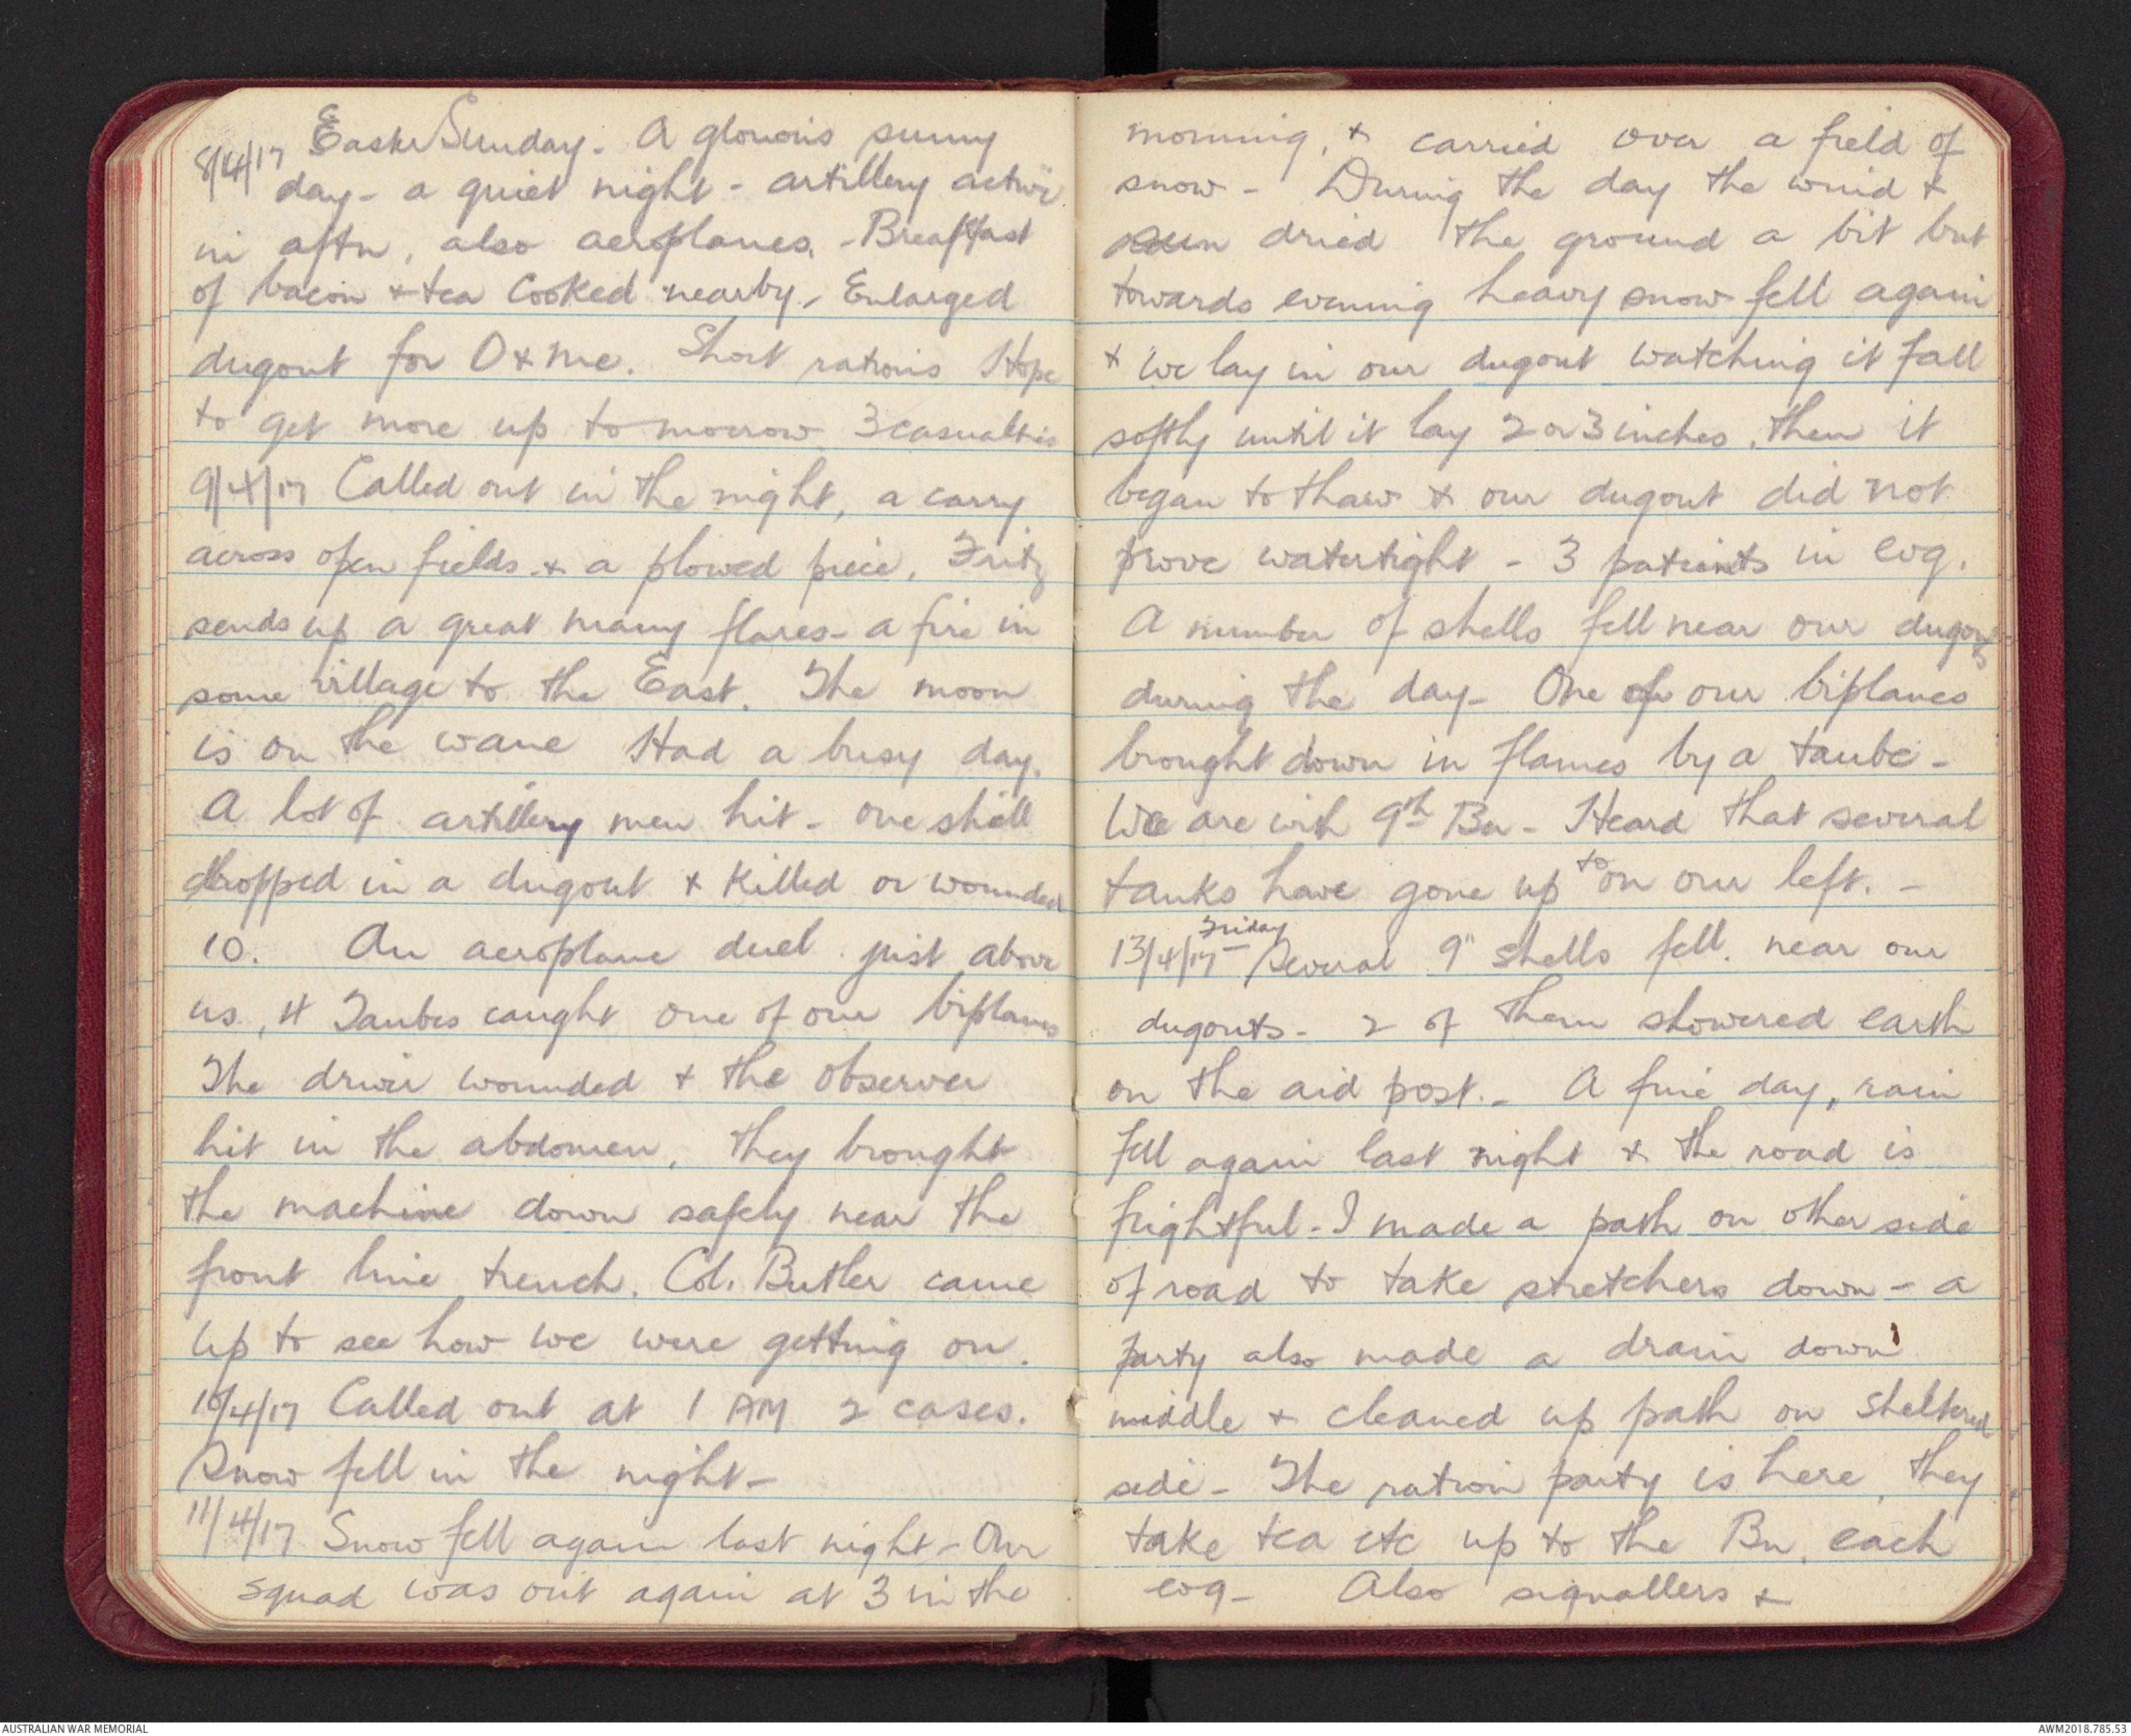 8/4/17 Easter Sunday. A glorious sunny
day - a quiet night - artillery active
in aftn, also aeroplanes. - Breakfast
of bacon + tea cooked nearby, Enlarged
dugout for O + me. Short rations Hope
to get more up to morrow 3 casualties
9/4/17 Called out in the night, a carry
across open fields + a plowed piece. Fritz
sends up a great many flares - a fire in
some village to the East. The moon
is on the wane Had a busy day.
A lot of artillery men hit - one shell
dropped in a dugout + killed or wounded
10. An aeroplane duel just above
us, 4 Taubes caught one of our biplanes
The driver wounded + the observer
hit in the abdomen, they brought
the machine down safely near the
front line trench. Col. Butler came
up to see how we were getting on.
10/4/17 Called out at 1 AM 2 cases.
Snow fell in the night -
11/4/17 Snow fell again last night - Our
squad was out again at 3 in the
morning, + carried over a field of
snow - During the day the wind +
sun dried the ground a bit but
towards evening heavy snow fell again
+ we lay in our dugout watching it fall
softly until it lay 2 or 3 inches, then it
began to thaw + our dugout did not
prove watertight - 3 patients in evg.
A number of shells fell near our dugouts
during the day - One of our biplanes
brought down in flames by a taube -
We are with 9th Bn - Heard that several
tanks have gone up to on our left. -
13/4/17 Friday Several 9" shells fell near our
dugouts - 2 of them showered earth
on the aid post. - A fine day, rain
fell again last night + the road is
frightful - I made a path on other side
of road to take stretchers down - a
party also made a drain down
middle + cleaned up path on sheltered
side - The ration party is here, they
take tea etc up to the Bn. each
evg - Also signallers +
AUSTRALIAN WAR MEMORIAL
AWM2018.785.53